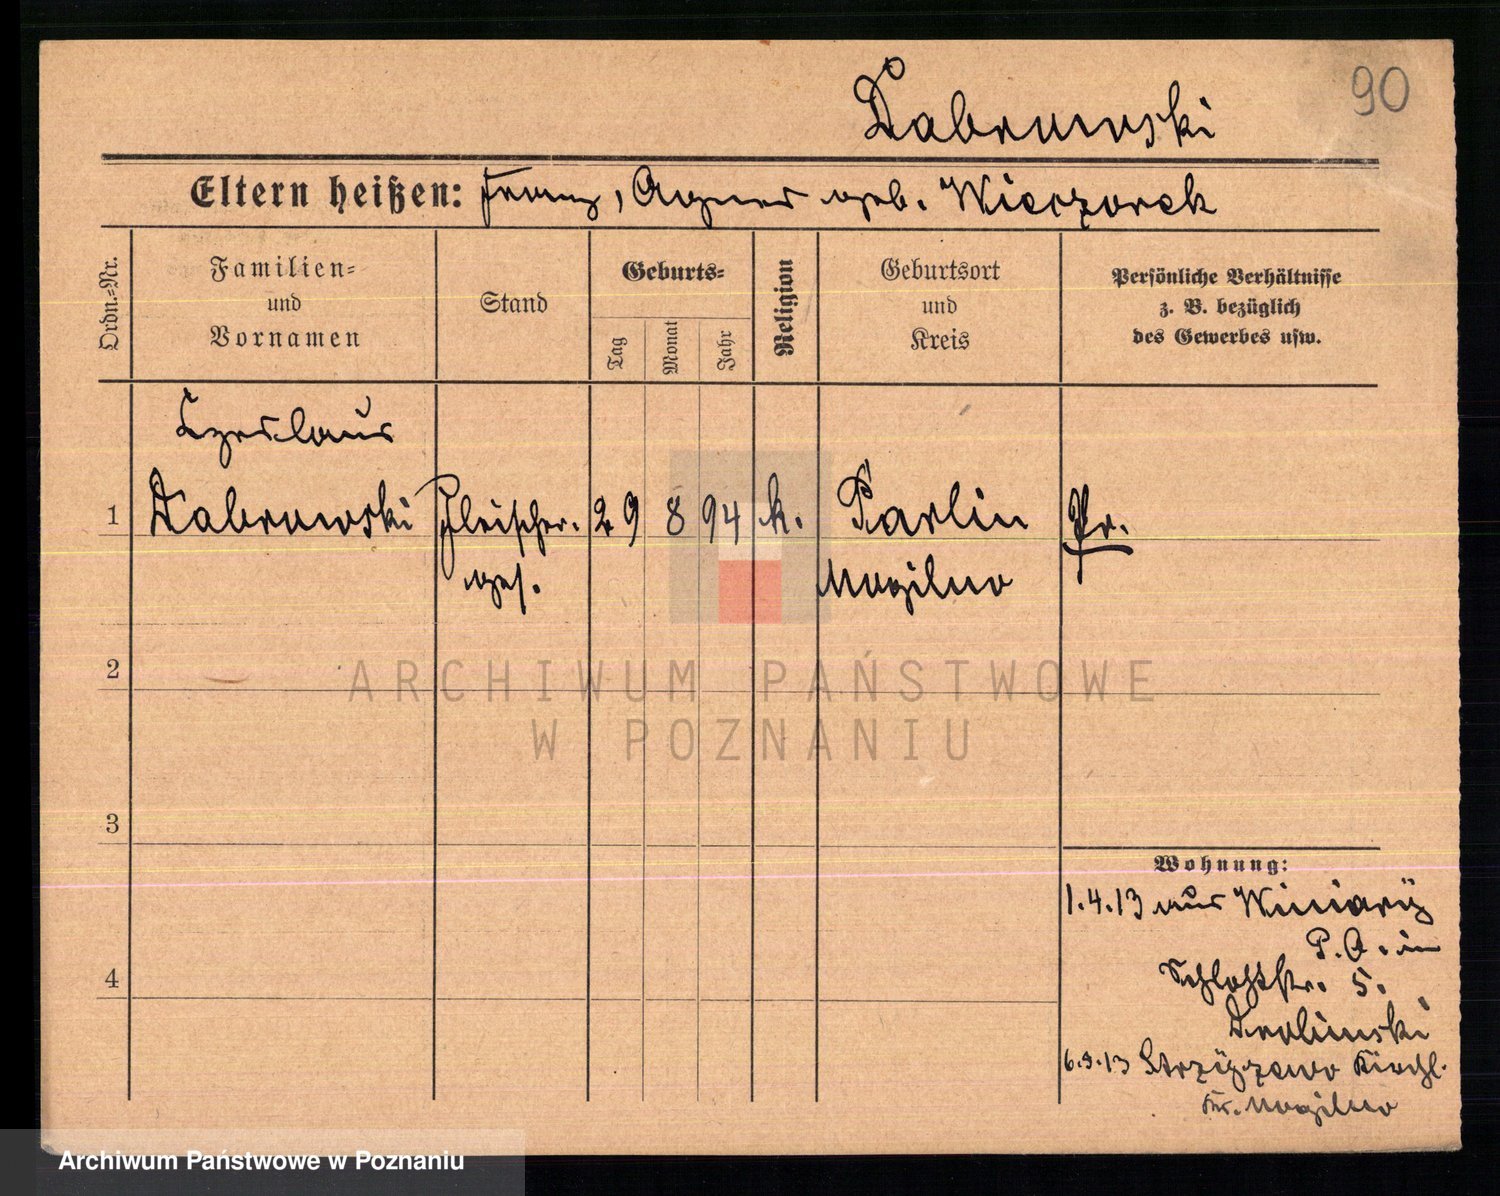 90
Dabrowski
Eltern heißen: Franz, Agnes geb. Wieczorek
Ordn.-Nr.
Familien-
und
Vornamen
Stand
Geburts-
Tag
Monat
Jahr
Religion
Geburtsort
und
Kreis
Persönliche Verhältnisse
z. B. bezüglich
des Gewerbes usw.
Czeslaus
1 Dabrowski Fleischer- 29 8 94 k. Parlin Pr.
ges. Mogilno
2
3
4
Wohnung:
1.4.13 aus Winiary
P.O. in
Schloßstr. 5.
Drolinski
6.9.13 Strzyzewo Kirchl.
Kr. Mogilno
ARCHIWUM PAŃSTWOWE
W POZNANIU
Archiwum Państwowe w Poznaniu